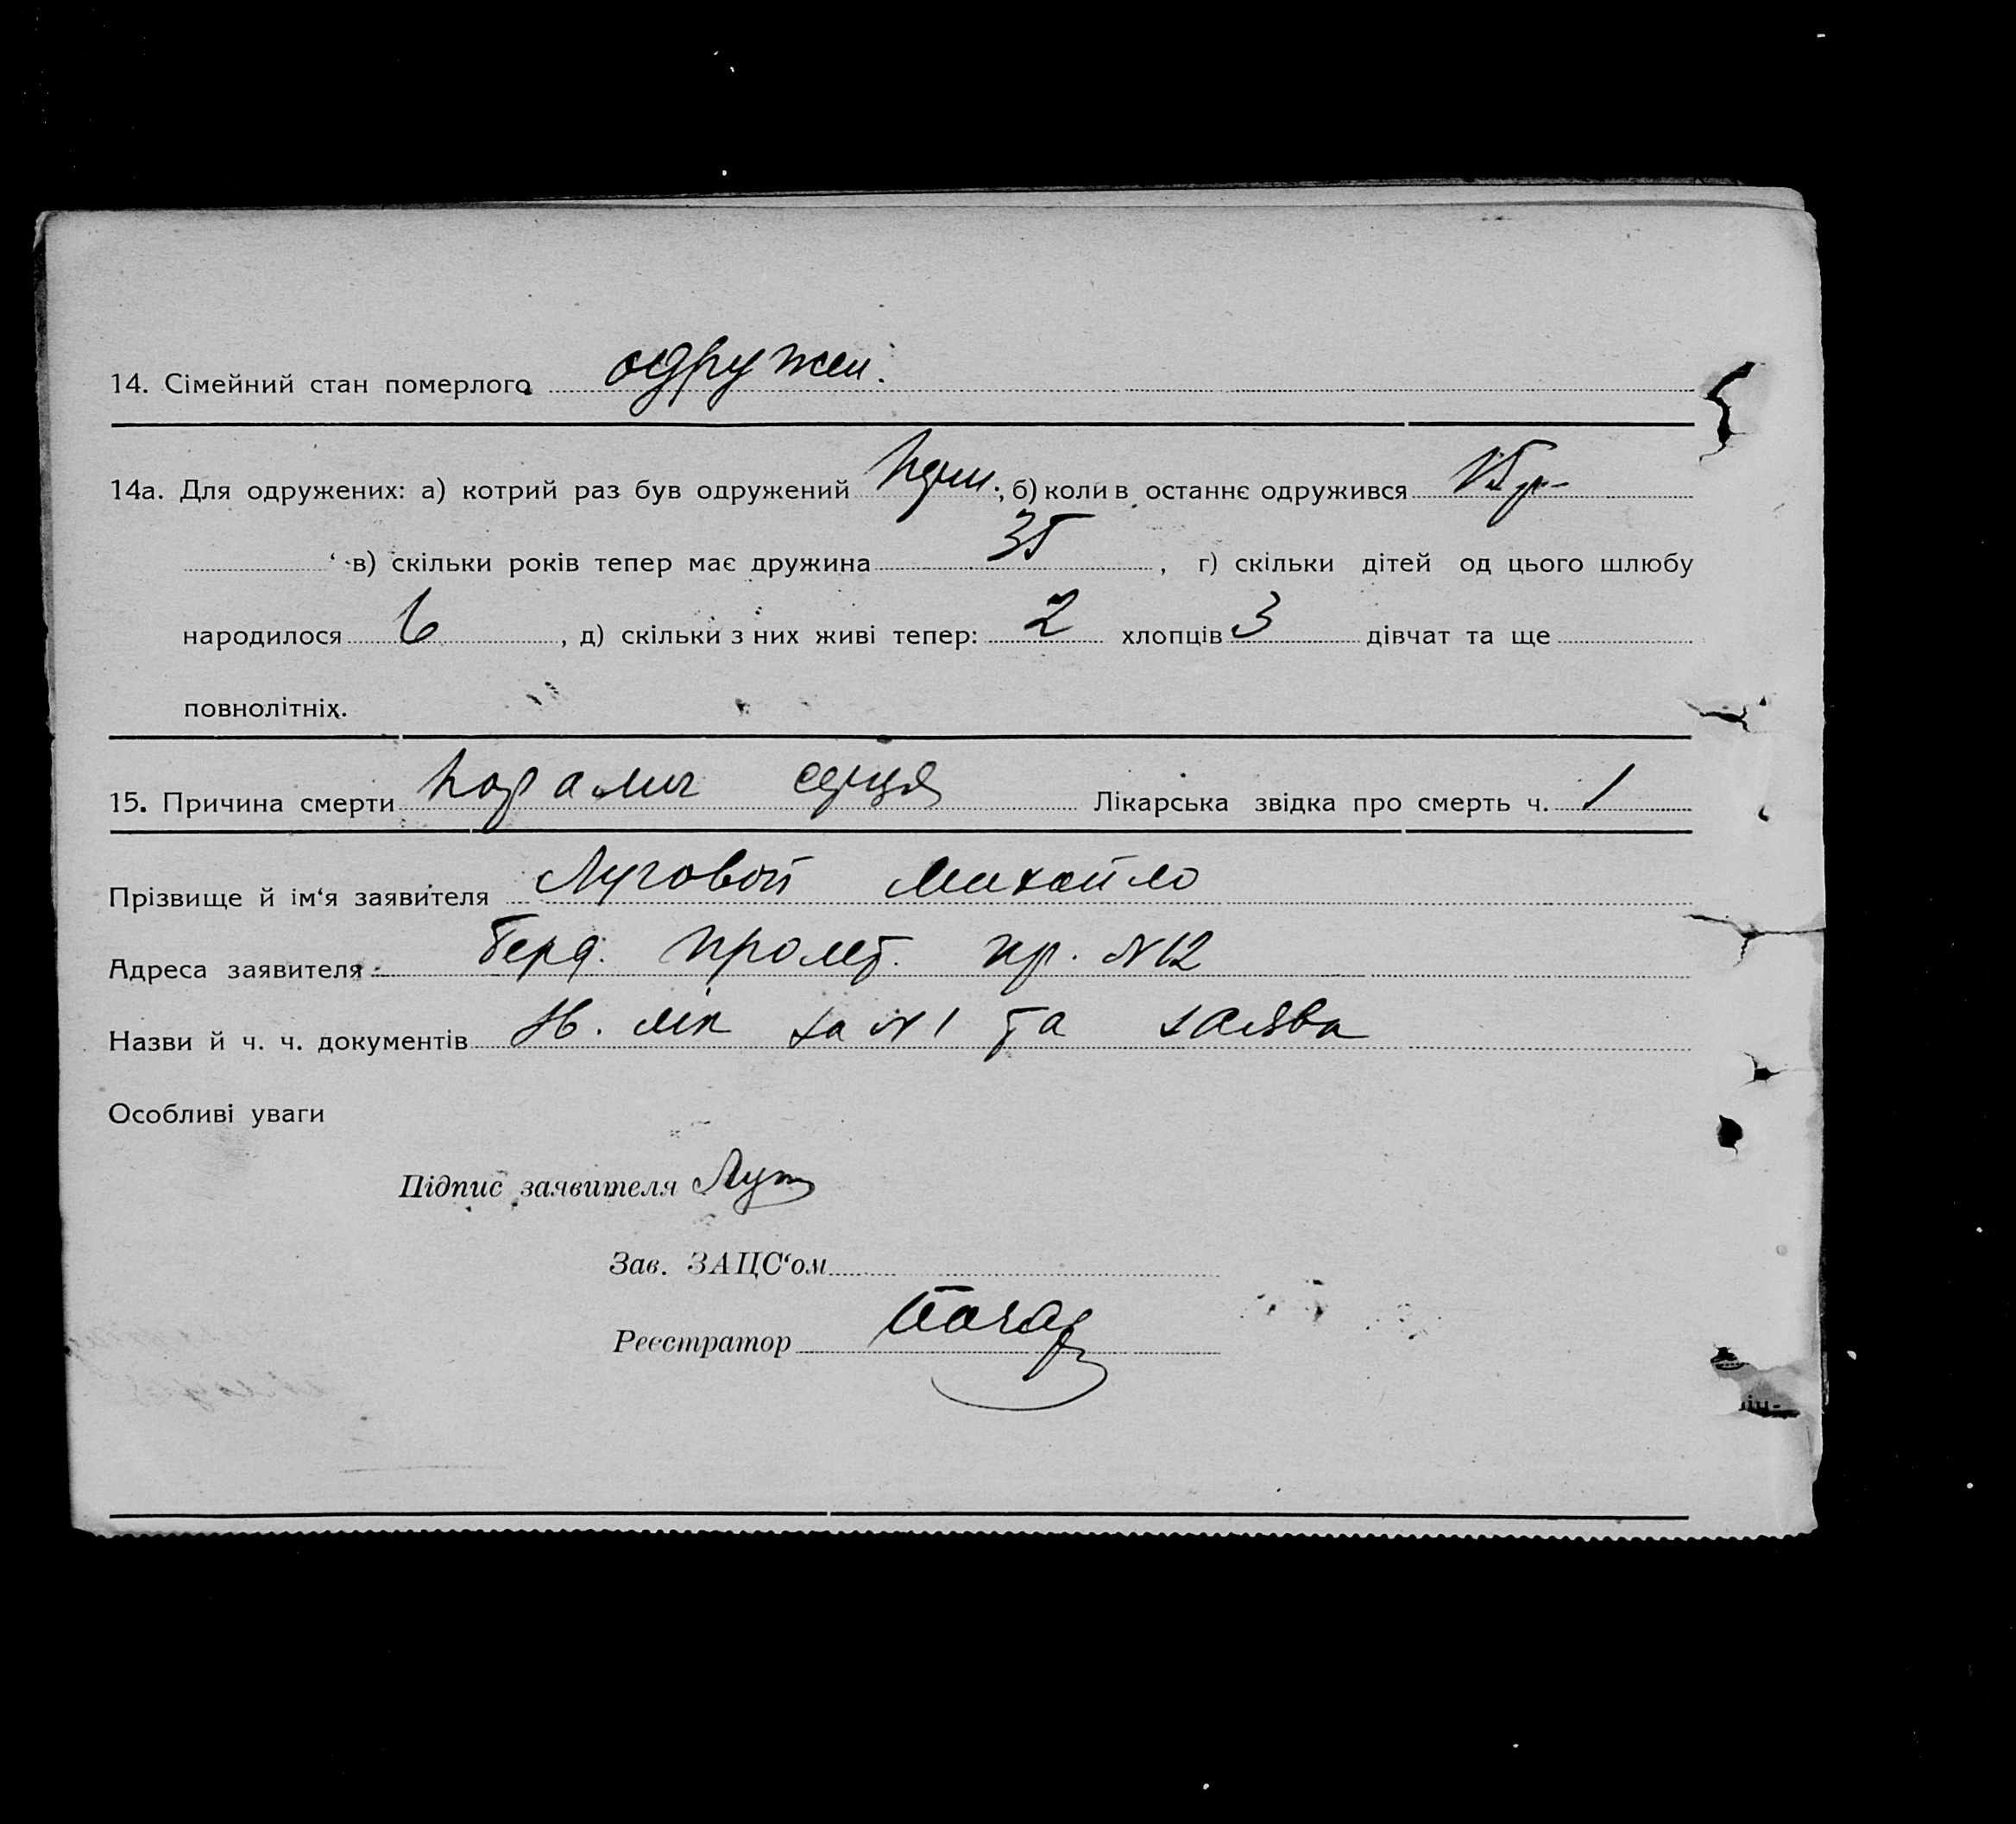 14. Сімейний стан померлого одружен.
14а. Для одружених: а) котрий раз був одружений , б) коли в останнє одружився
в) скільки років тепер має дружина 35 , г) скільки дітей од цього шлюбу
народилося 6 , д) скільки з них живі тепер: 2 хлопців 3 дівчат та ще
повнолітніх.
15. Причина смерти параліч серця Лікарська звідка про смерть ч. 1
Прізвище й ім‘я заявителя Луговой Михайло
Адреса заявителя Берд. Пролет. пр. №12
Назви й ч. ч. документів лік за №1 та заява
Особливі уваги
Підпис заявителя
Зав. ЗАЦС‘ом
Реєстратор